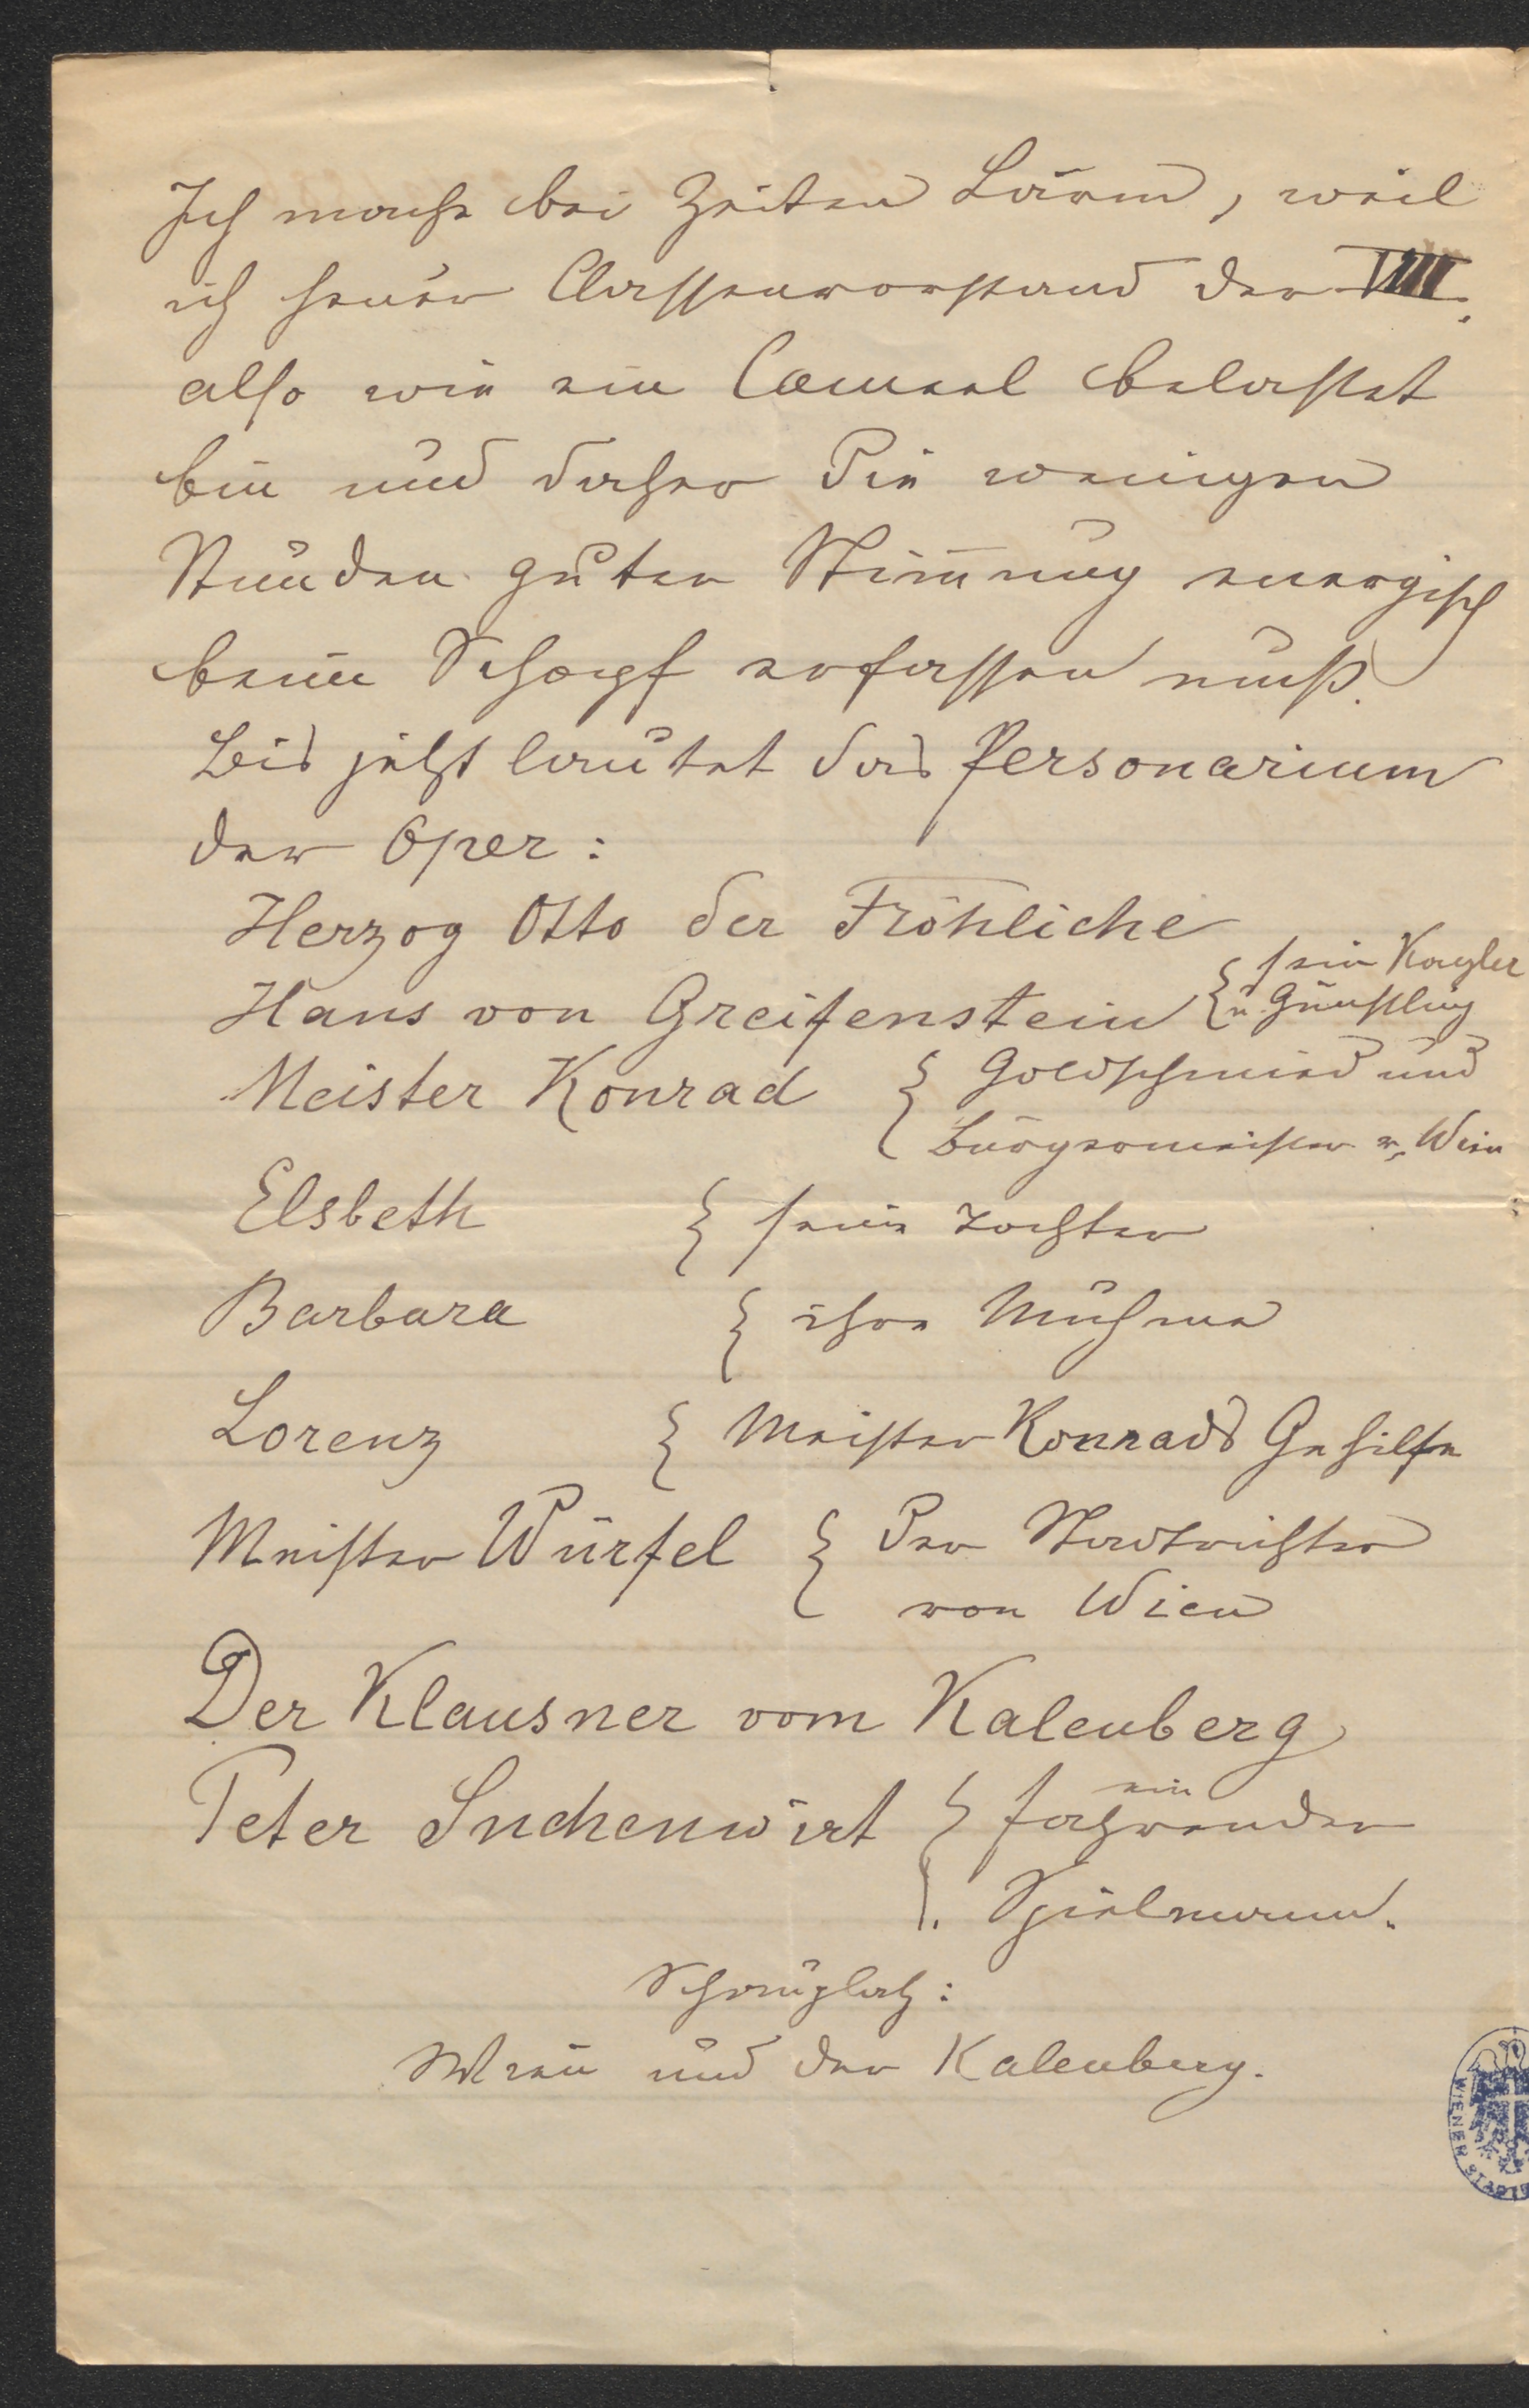 Ich mache bei Zeiten Lärm, weil
ich heuer Classenvorstand der VIII.
also wie ein Cameel belastet
bin und daher die wenigen
Stunden guter Stimmung energisch
beim Schopf erfassen muß.
Bis jetzt lautet das Personarium
der Oper:
Herzog Otto der Fröhliche
Hans von Greifenstein { sein Kanzler
u. Günstling
Meister Konrad { Goldschmied und
Bürgermeister v. Wien
Elsbeth { seine Tochter
Barbara { ihre Muhme
Lorenz { Meister Konrads Gehilfe
Meister Würfel { Der Stadtrichter
von Wien
Der Klausner vom Kalenberg
Peter Suchenwirt { ein fahrender
Spielmann.
Schauplatz:
Wien und der Kalenberg.
WIENER